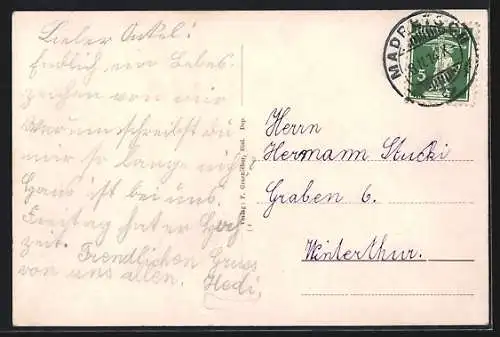 Lieber Onkel!
Endlich ein Lebens-
zeichen von mir
Warum schreibst du
mir so lange nicht,
Hans ist bei uns.
Freitag hat er Hoch
zeit. Freundlichen Gruss
von uns allen. Hedi.
Verlag: F. Dep.
MADRETSCH
5
Herrn
Hermann Stucki
Graben 6.
Winterthur.